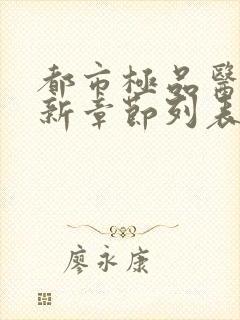 都市極品醫
新章節列表
廖永康